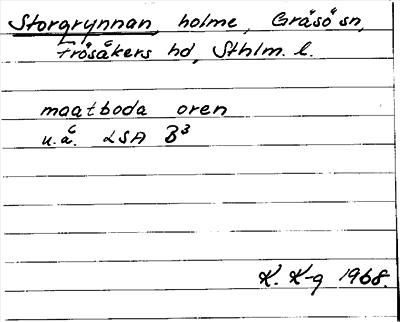 Storgrynnan, holme, Gräsö sn,
Frösåkers hd, Sthlm. l.
maatboda oren
u.å. LSA B³
K. K-g 1968.